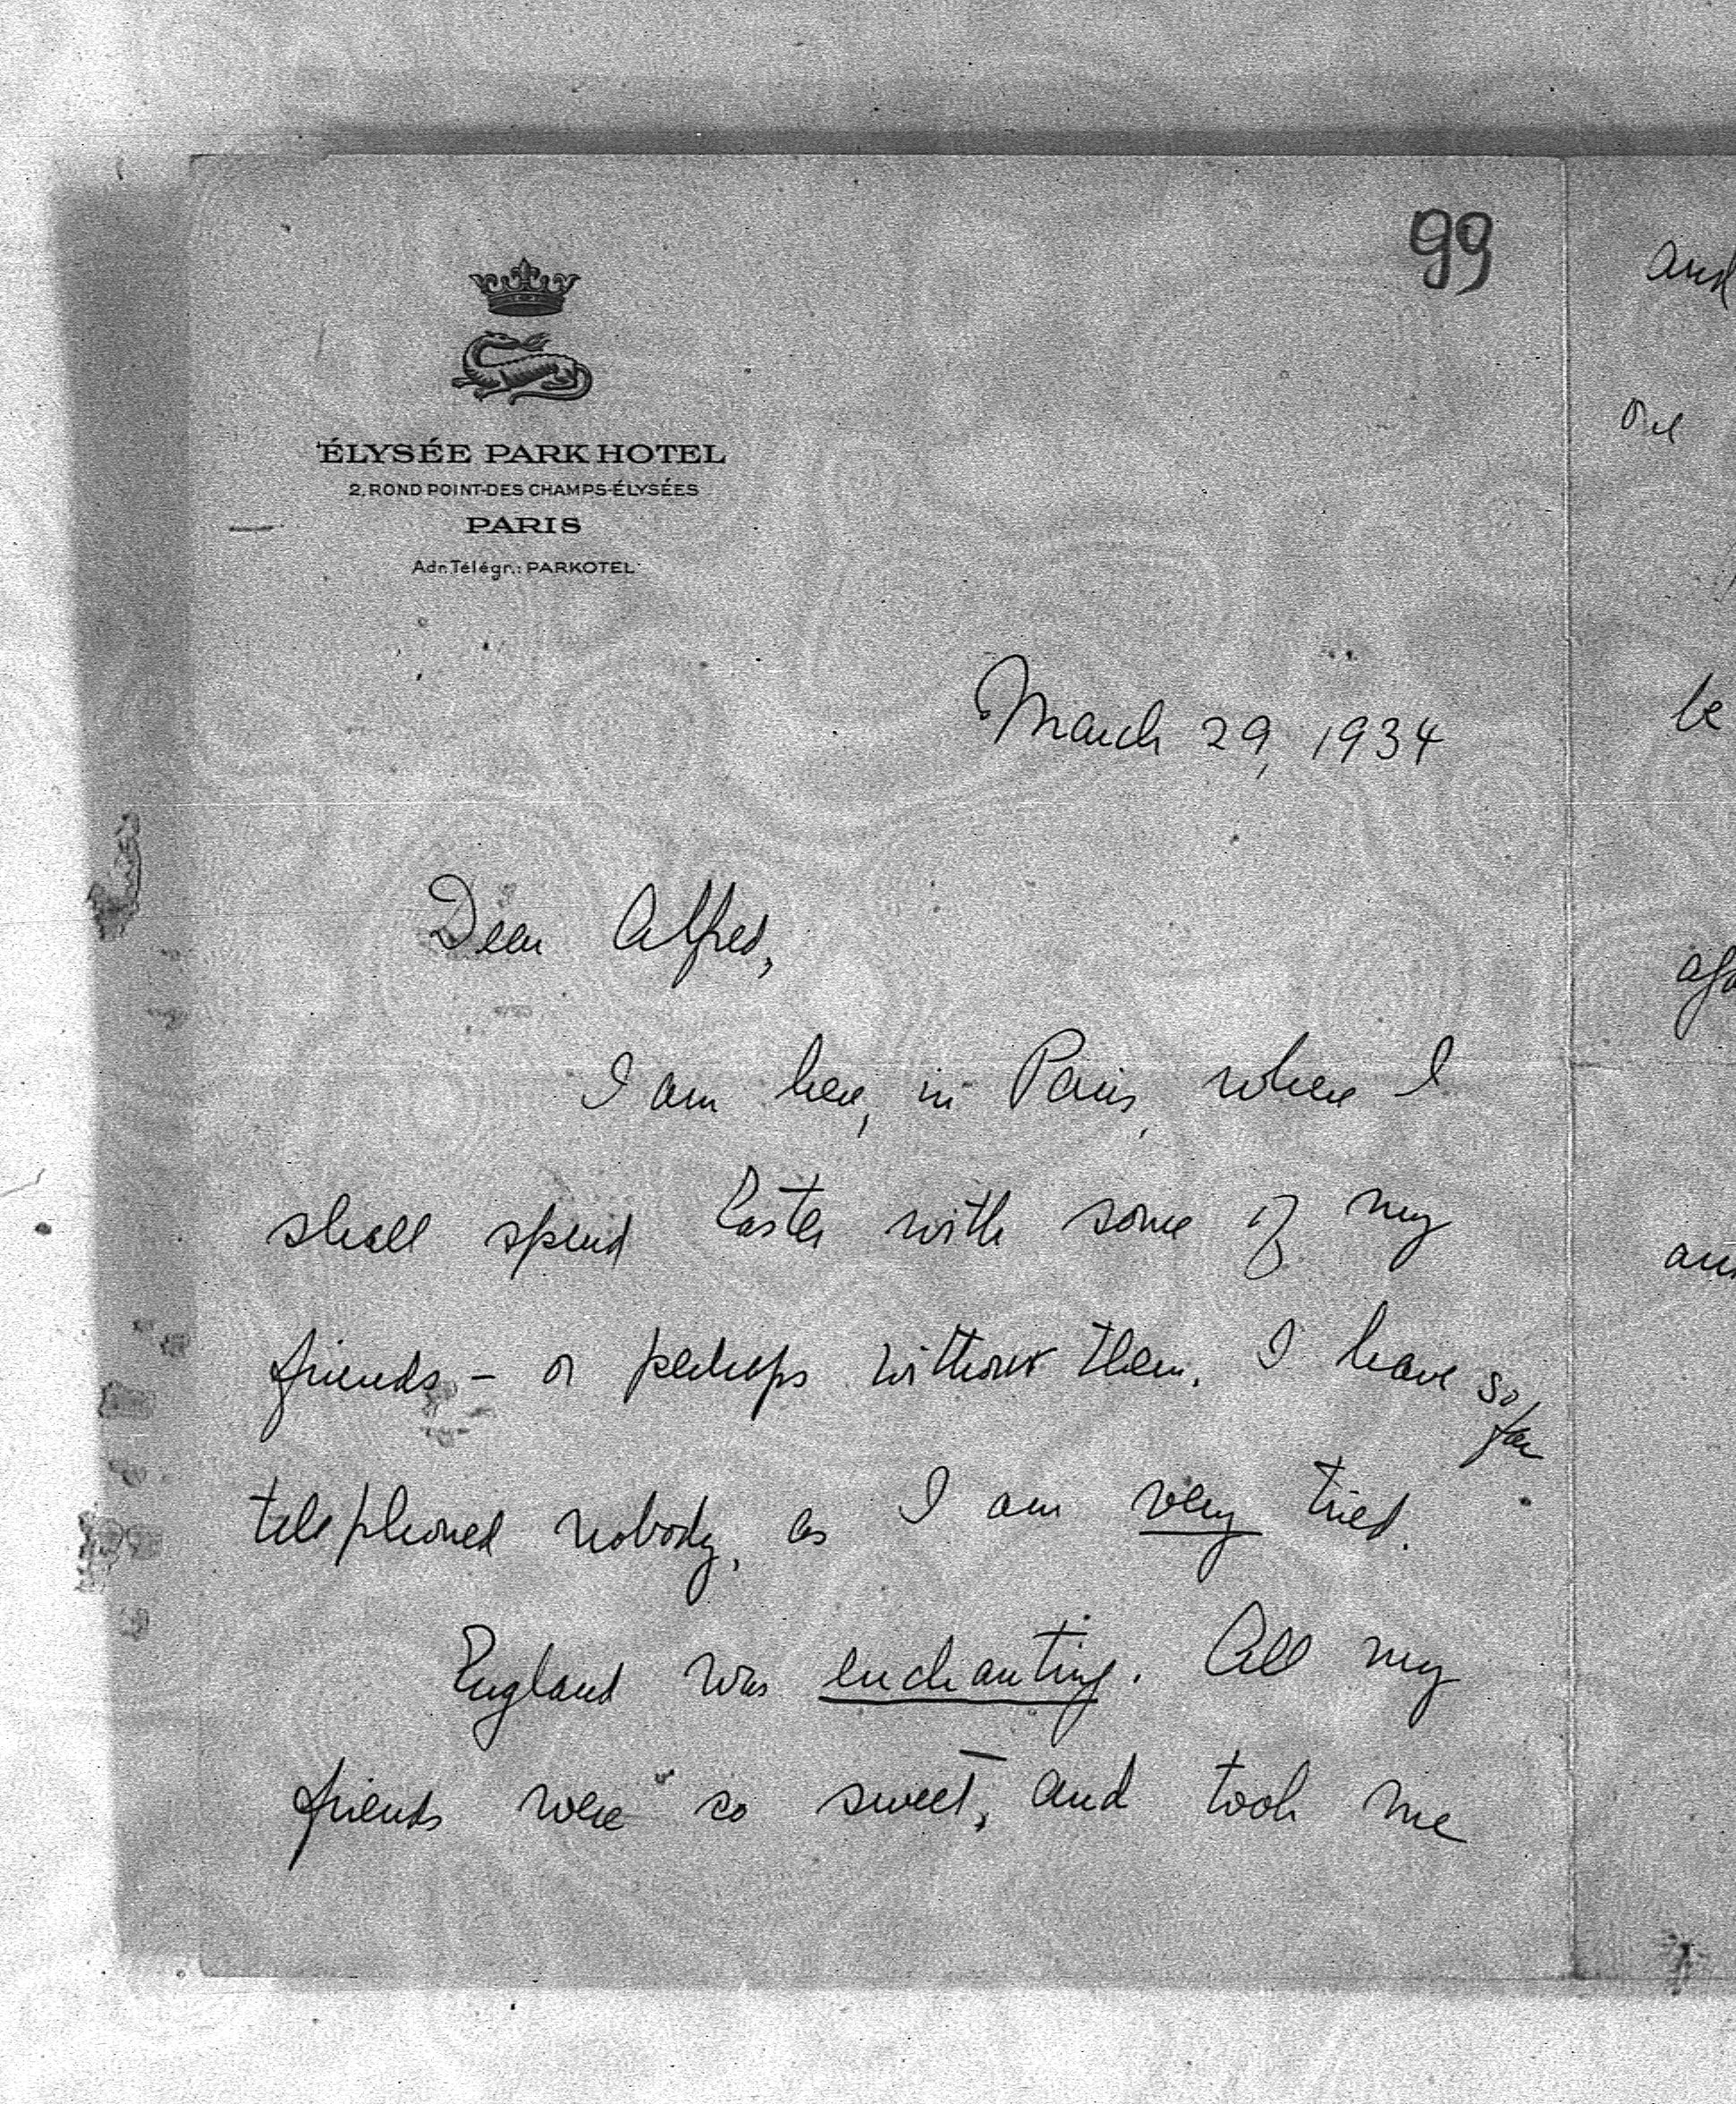 99
ÉLYSÉE PARK HOTEL
2, ROND POINT-DES CHAMPS-ÉLYSÉES
PARIS
Adr. Télégr.: PARKOTEL
March 29, 1934
Dear Alfred,
I am here, in Paris, where I
shall spend Easter with some of my
friends – or perhaps without them. I have so far
telephoned nobody, as I am very tired.
England was enchanting. All my
friends were so sweet, and took me
and
one
be
and